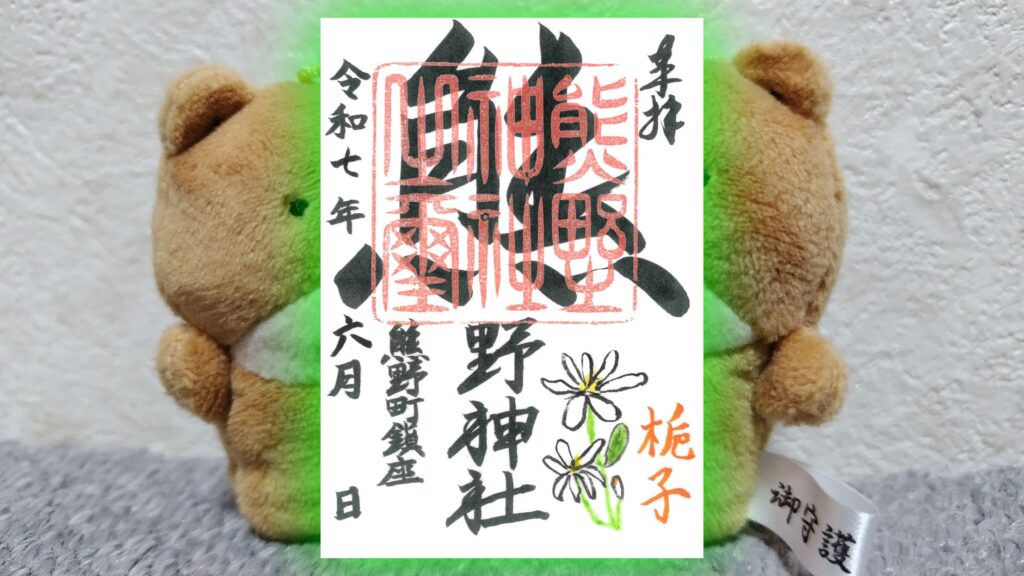 奉拝
熊野神社
熊野神社之璽
熊野町鎮座
令和七年六月 日
梔子
御守護